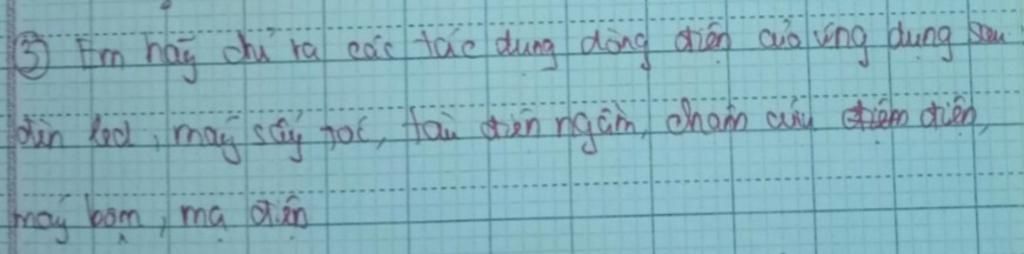 ③ Em hãy chỉ ra các tác dụng dòng điện của ứng dụng sau
đèn led, máy sấy tóc, tàu điện ngầm, châm cứu điện,
máy bơm, mạ điện